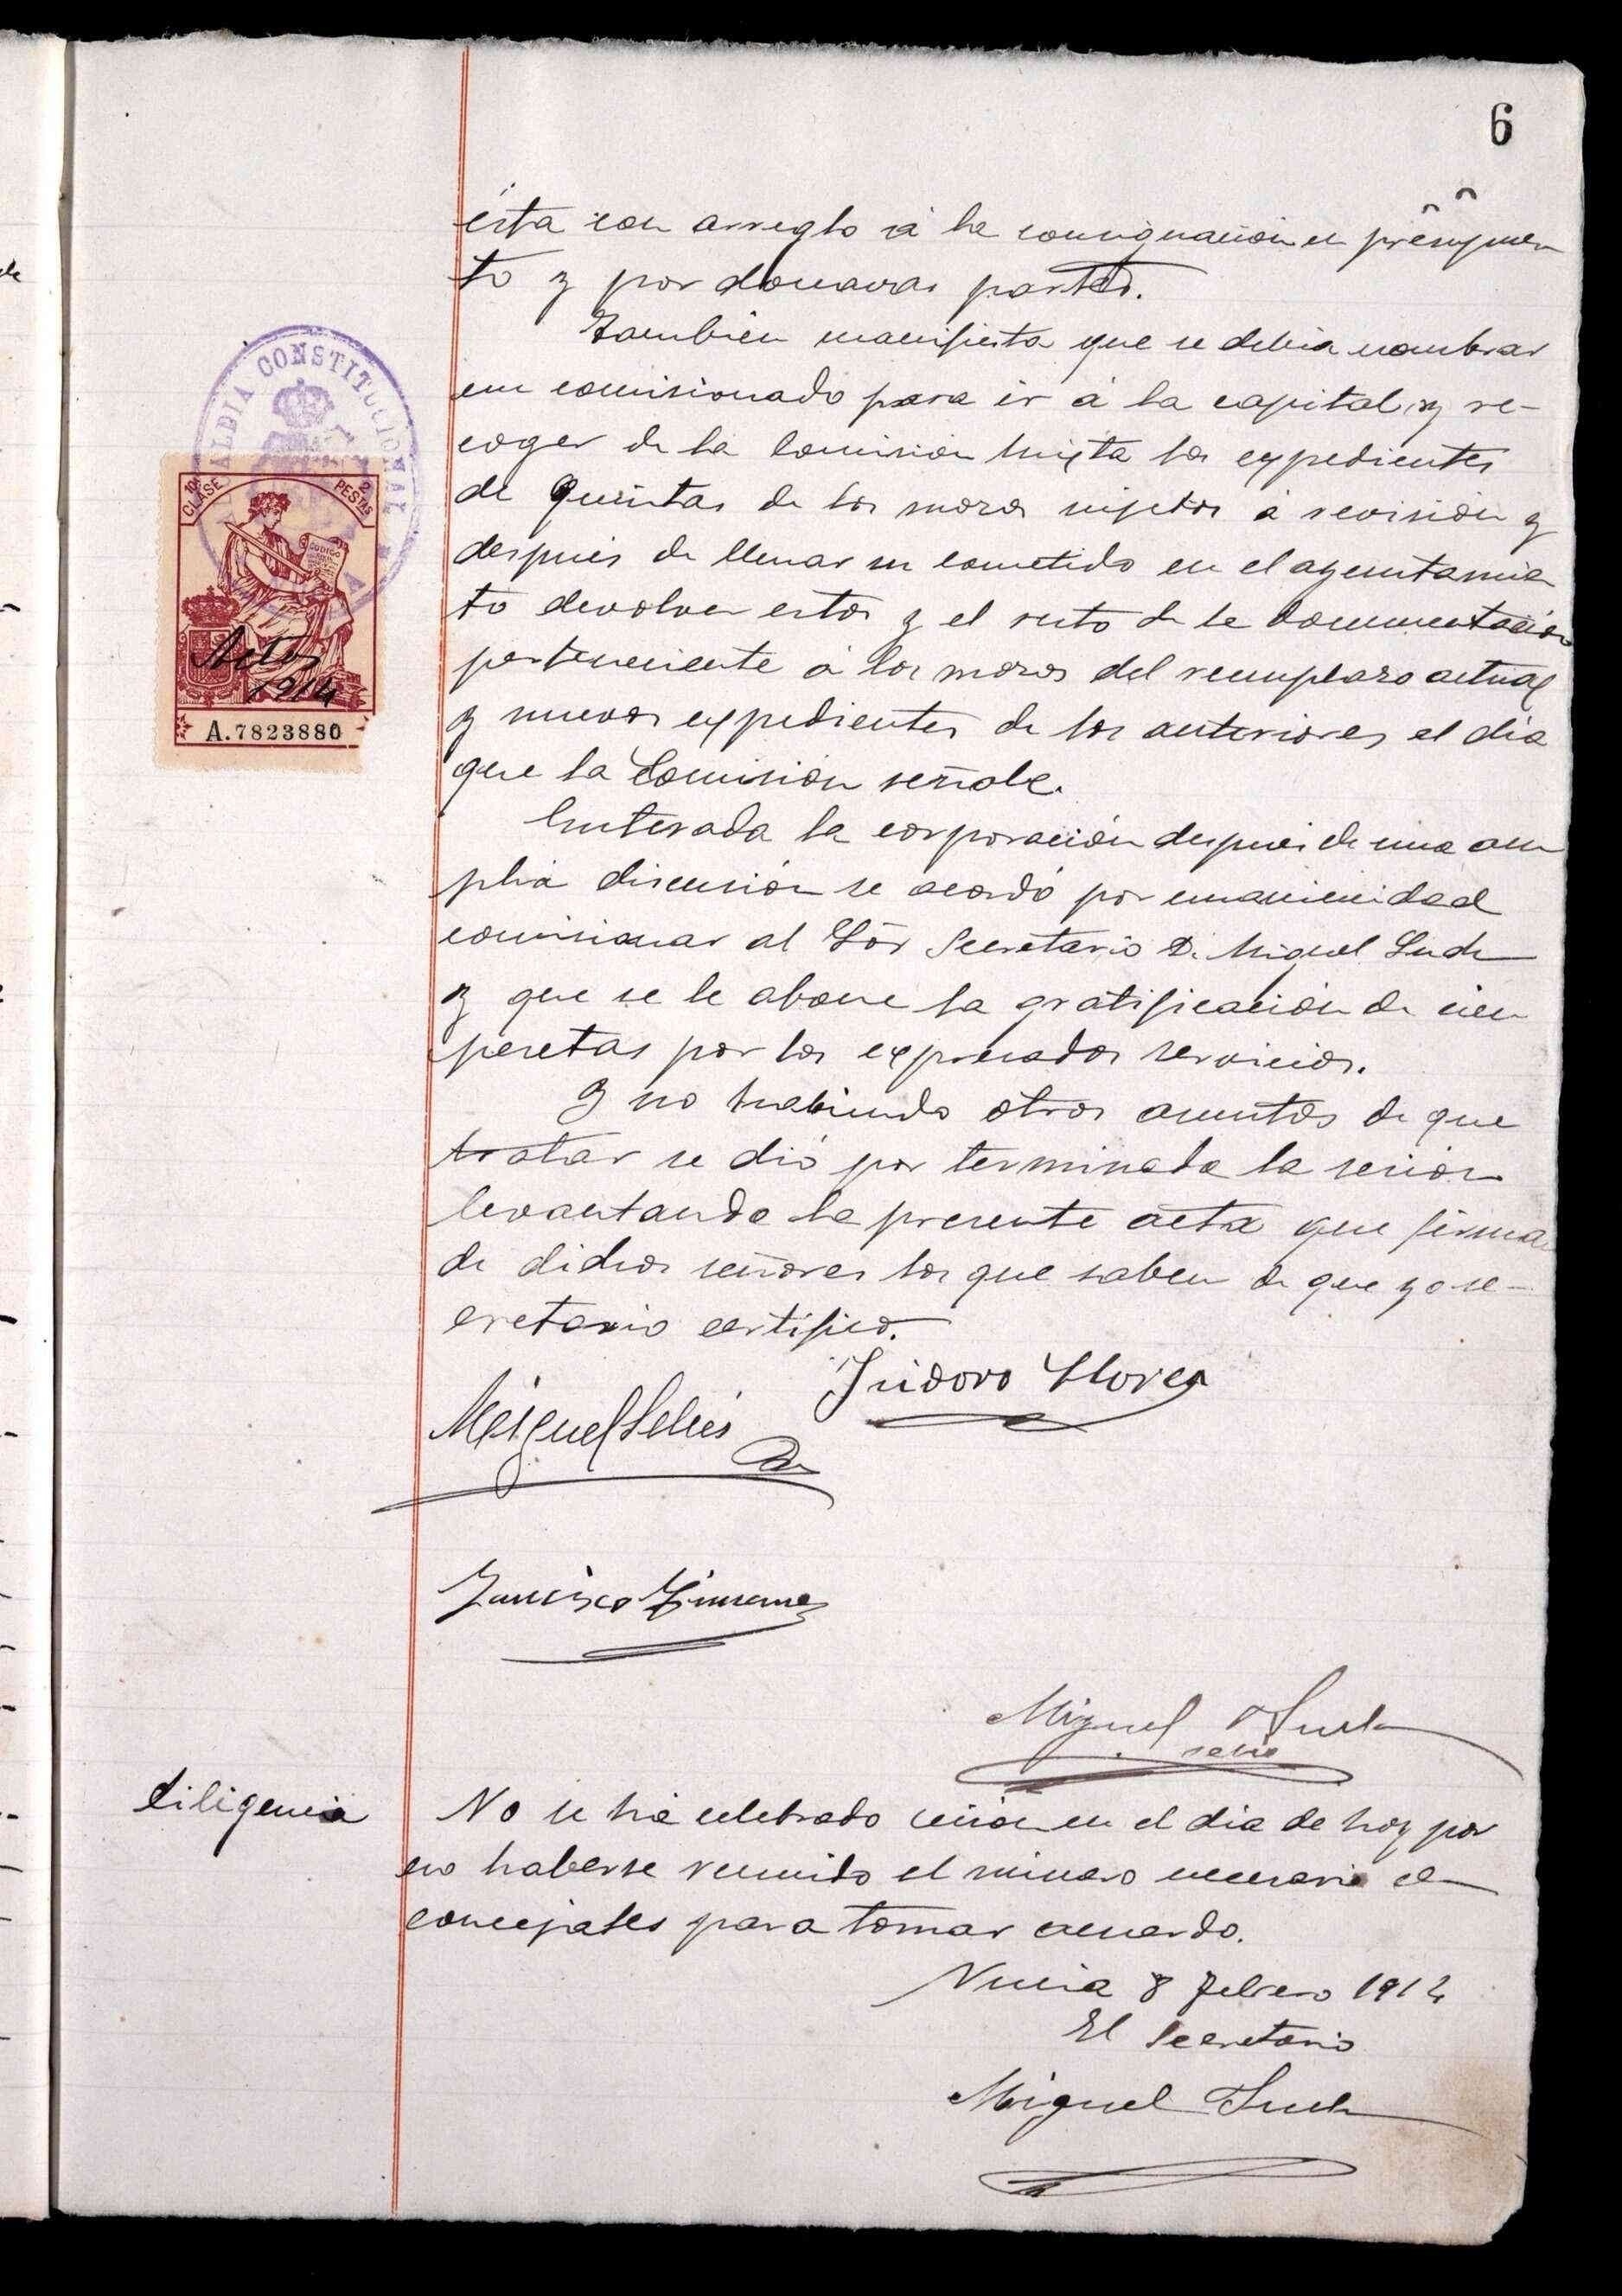 6
ésta con arreglo á la consignación en presupuen
to y por doceavas partes.
También manifiesta que se debia nombrar
un comisionado para ir á la capital y re-
coger de la Comisión Mixta los expedientes
de Quintas de los mozos sujetos á revisión y
después de llenar su cometido en el ayuntamien
to devolver estos y el resto de la documentación
perteneciente á los mozos del reemplazo actual
y nuevos expedientes de los anteriores el dia
que la Comisión señale.
Enterada la corporación después de una am
plia discusión se acordó por unanimidad
comisionar al Sõr Secretario D. Miguel Such
y que se le abone la gratificación de cien
pesetas por los expresados servicios.
Y no habiendo otros asuntos de que
tratar se dió por terminada la sesión
levantando la presente acta que firman
de dichos señores los que saben de que yo se-
cretario certifico.
Isidoro Llorca
Miguel Sellés
Francisco Gimenez
Miguel Such
Diligencia
No se ha celebrado sesión en el dia de hoy por
no haberse reunido el número necesario de
concejales para tomar acuerdo.
Nucia 8 Febrero 1914
El Secretario
Miguel Such
ALDIA CONSTITUCIONAL
10ª CLASE
2 PESTAS
CODIGO
Actas
1914
A.7823880